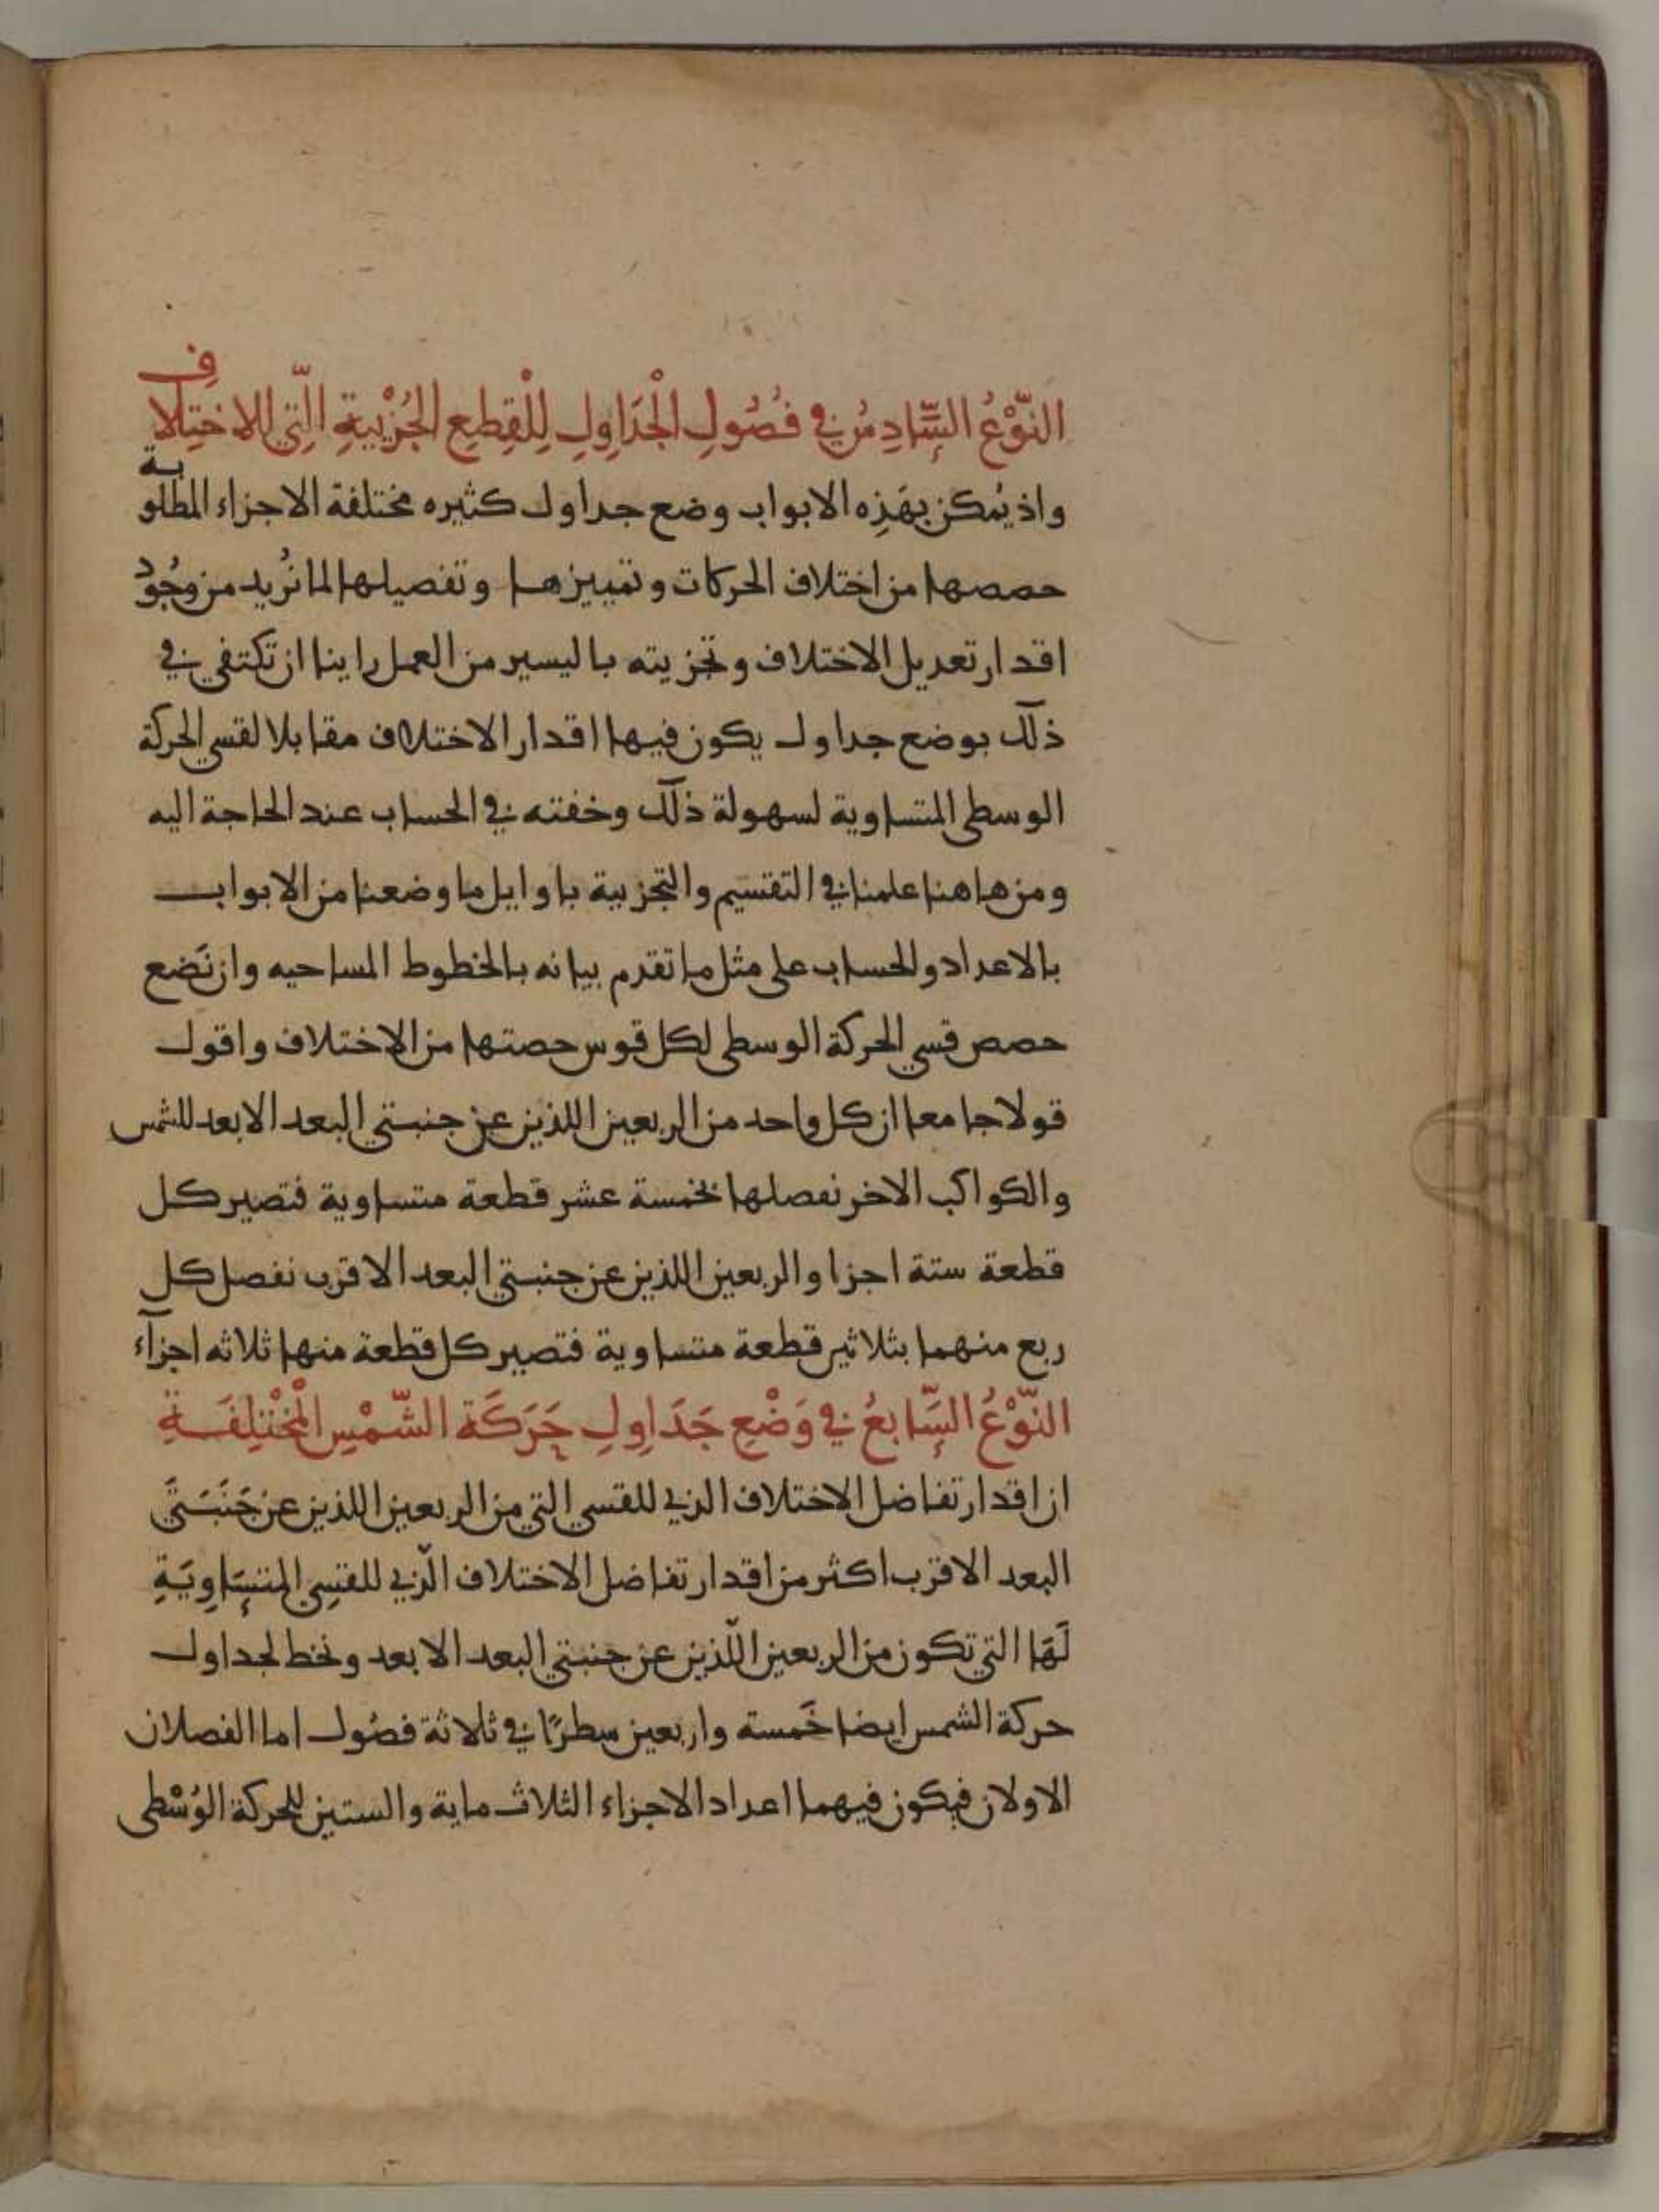 النَّوْعُ السَّادِسُ في فُصُولِ الْجَدَاوِلِ لِلْقِطَعِ الجُزْبيةِ الَّتي للاختِلاف
واذ يُمكن بهَذِه الابواب وضع جداول كثيره مختلفة الاجزاء المطلوبة
حصصها من اختلاف الحركات وتمييزها وتفصيلها لما نُريد من وجُود
اقدار تعديل الاختلاف وتجزيته باليسير من العمل راينا ان تكتفي في
ذلك بوضع جداول يكون فيها اقدار الاختلاف مقابلا لقسي الحركة
الوسطى المتساوية لسهولة ذلك وخفته في الحساب عند الحاجة اليه
ومن هاهنا علمنا في التقتسيم والتجزيبة باوايل ما وضعنا من الابواب
بالاعداد والحساب على مثل ما تقدم بيانه بالخطوط المساحيه وان نَضع
حصص قسي الحركة الوسطى لكل قوس حصتها من الاختلاف واقول
قولا جامعا ان كل واحد من الربعين اللذين عن جنبتي البعد الابعد للشمس
والكواكب الاخر نفصلها بخمسة عشر قطعة متساوية فتصير كل
قطعة ستة اجزا والربعين اللذين عن جنبتي البعد الاقرب نفصل كل
ربع منهما بثلاثين قطعة متساوية فتصير كل قطعة منها ثلاثه اجزآء
النَّوْعُ السَّابعُ في وَضْعِ جَدَاوِلِ حَرَكَة الشَّمْسِ الْمُخْتَلِفَةِ
ان اقدار تفاضل الاختلاف الذي للقسي التي من الربعين اللذين عن جَنَبَتَي
البعد الاقرب اكثر من اقدار تفاضل الاختلاف الّذي للقسِي المتسَاوِيَةِ
لَهَا التي تكون من الربعين اللّذين عن جنبتي البعد الابعد ونخط لجداول
حركة الشمس ايضا خَمسته واربعين سطرًا في ثلاثة فصُول اما الفصلان
الاولان فيكون فيهما اعداد الاجزاء الثلاث ماية والستين للحركة الوُسْطى